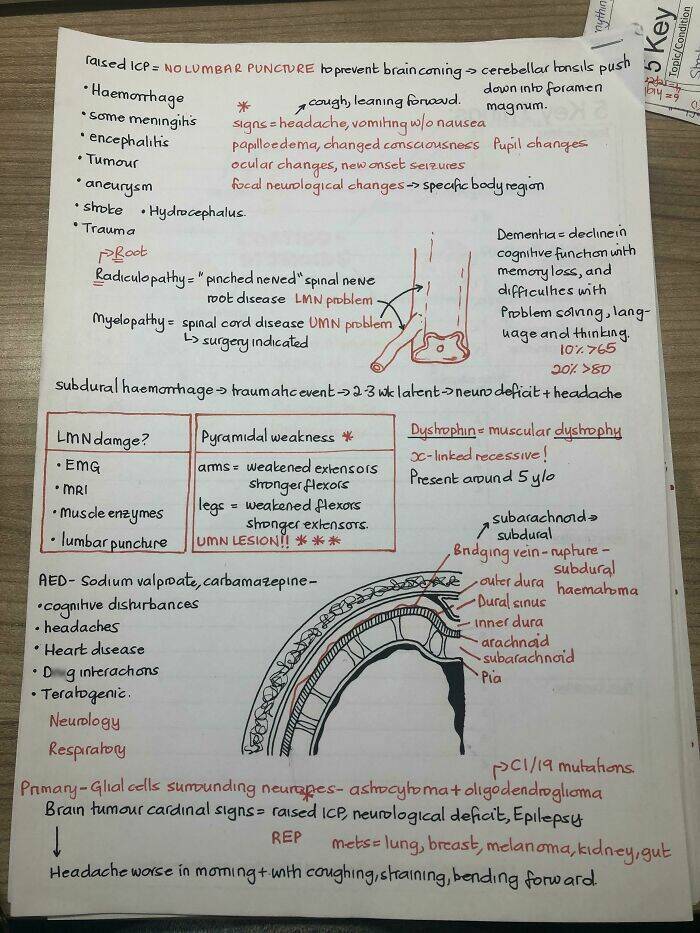 raised ICP = NO LUMBAR PUNCTURE to prevent brain coning → cerebellar tonsils push
down into foramen
magnum.
• Haemorrhage
• some meningitis
• encephalitis
• Tumour
• aneurysm
• stroke • Hydrocephalus.
• Trauma
* → cough, leaning forward.
signs = headache, vomiting w/o nausea
papilloedema, changed consciousness Pupil changes
ocular changes, new onset seizures
focal neurological changes → specific body region
→ Root
Radiculopathy = "pinched nerved" spinal nerve
root disease LMN problem
Myelopathy = spinal cord disease UMN problem
↳ surgery indicated
Dementia = decline in
cognitive function with
memory loss, and
difficulties with
Problem solving, lang-
uage and thinking.
10% >65
20% >80
subdural haemorrhage → traumatic event → 2-3 wk latent → neuro deficit + headache
LMN damge?
• EMG
• MRI
• Muscle enzymes
• lumbar puncture
Pyramidal weakness *
arms = weakened extensors
stronger flexors
legs = weakened flexors
stronger extensors.
UMN LESION!! * * *
Dystrophin = muscular dystrophy
x-linked recessive!
Present around 5 y/o
AED - Sodium valproate, carbamazepine -
• cognitive disturbances
• headaches
• Heart disease
• D g interactions
• Teratogenic.
Neurology
Respiratory
subarachnoid →
subdural
Bridging vein - rupture -
subdural
haematoma
outer dura
Dural sinus
inner dura
arachnoid
subarachnoid
Pia
→ C1/19 mutations.
Primary - Glial cells surrounding neurones - astrocytoma + oligodendroglioma
*
Brain tumour cardinal signs = raised ICP, neurological deficit, Epilepsy
REP
mets = lung, breast, melanoma, kidney, gut
↓
Headache worse in morning + with coughing, straining, bending forward.
5 Key
Topic/Condition